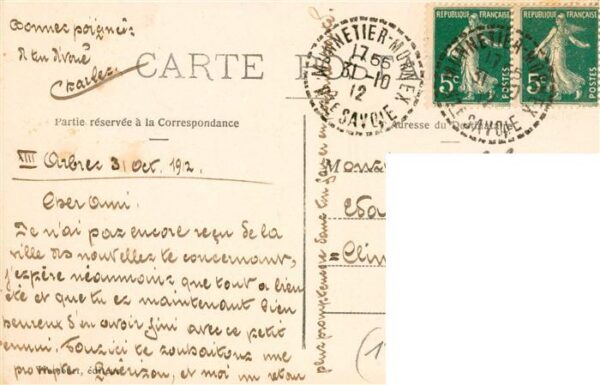 Bonnes poignées
A ton divoué
Charles
CARTE P
MONNETIER-MORNEX
17 55
31-10
12
HTE SAVOIE
RÉPUBLIQUE FRANÇAISE
5c
POSTES
RÉPUBLIQUE FRANÇAISE
5c
POSTES
Partie réservée à la Correspondance
Adresse du Des
XIII Arbres 31 oct. 1912.
Cher Ami.
Je n'ai pas encore reçu de la
ville des nouvelles te concernant,
j'espère néanmoins que tout a bien
été et que tu es maintenant bien
heureux d'en avoir fini avec ce petit
ennui. Tous ici te souhaitons une
prompte guérison, et moi un retour
plus prompt encore dans ton foyer
Mons
Cli